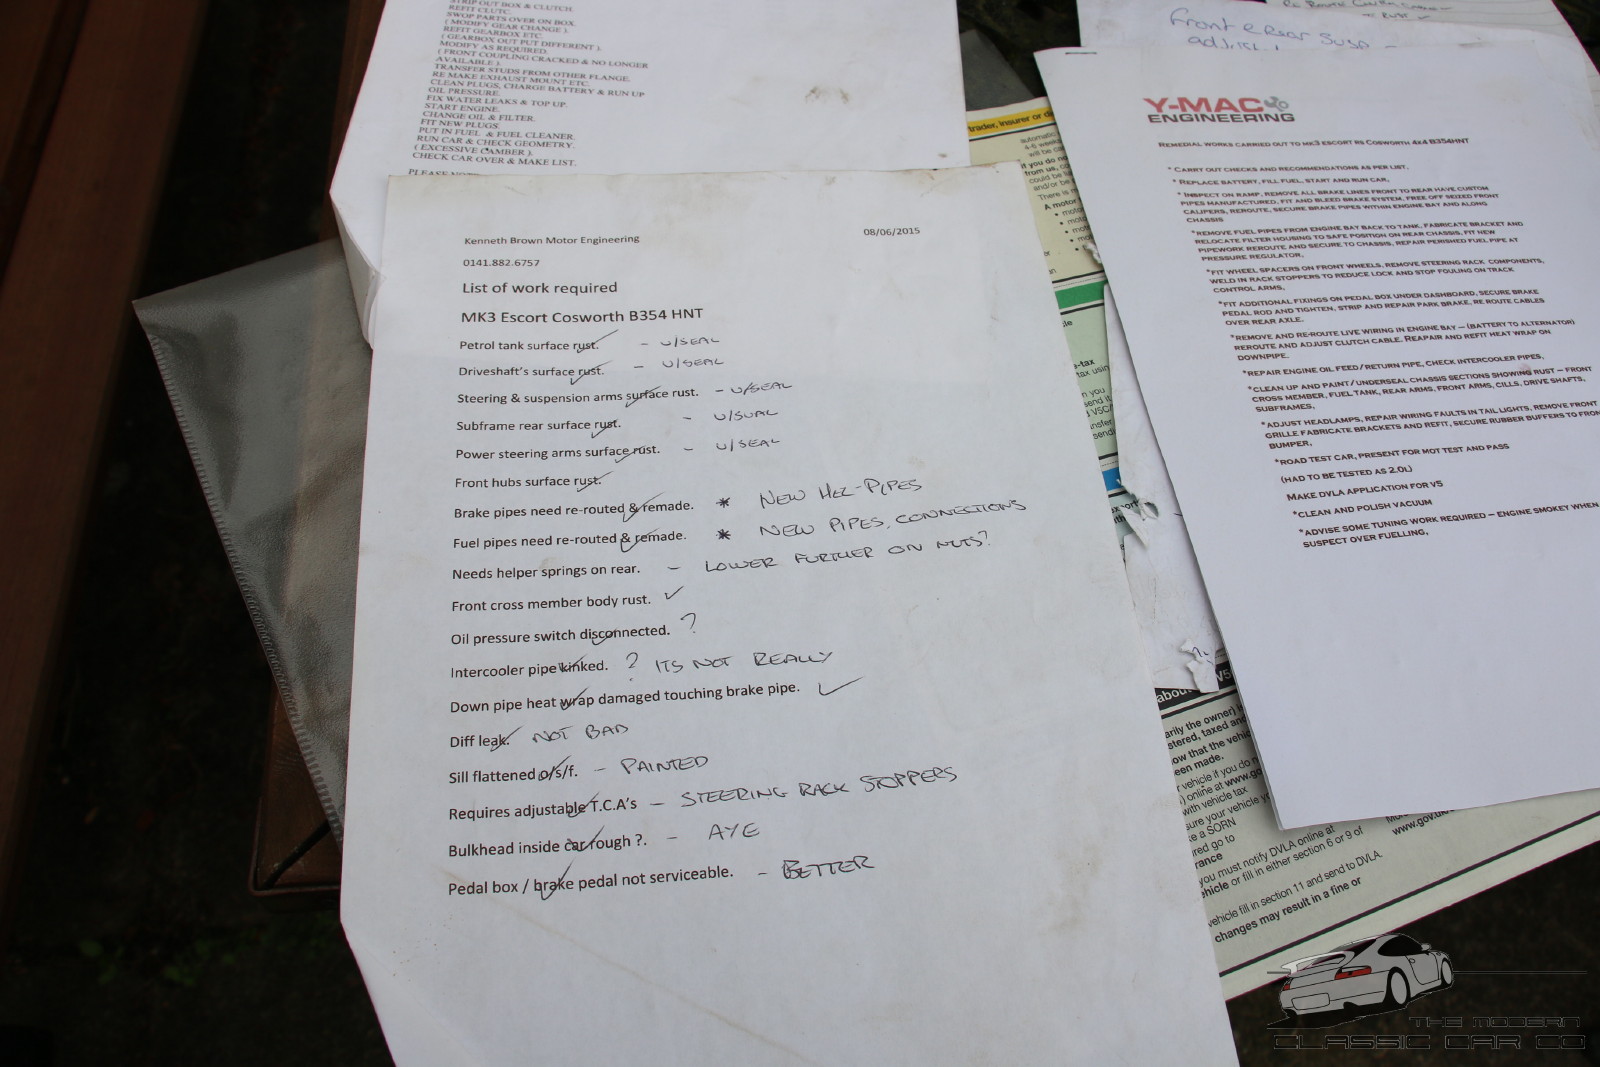 STRIP OUT BOX & CLUTCH.
REFIT CLUTC.
SWOP PARTS OVER ON BOX.
( MODIFY GEAR CHANGE ).
REFIT GEARBOX ETC.
( GEARBOX OUT PUT DIFFERENT ).
MODIFY AS REQUIRED.
( FRONT COUPLING CRACKED & NO LONGER
AVAILABLE ).
TRANSFER STUDS FROM OTHER FLANGE.
RE MAKE EXHAUST MOUNT ETC.
CLEAN PLUGS, CHARGE BATTERY & RUN UP
OIL PRESSURE.
FIX WATER LEAKS & TOP UP.
START ENGINE.
CHANGE OIL & FILTER.
FIT NEW PLUGS.
PUT IN FUEL & FUEL CLEANER.
RUN CAR & CHECK GEOMETRY.
( EXCESSIVE CAMBER ).
CHECK CAR OVER & MAKE LIST.
PLEASE
Kenneth Brown Motor Engineering
08/06/2015
0141.882.6757
List of work required
MK3 Escort Cosworth B354 HNT
Petrol tank surface rust. - U/SEAL
Driveshaft's surface rust. - U/SEAL
Steering & suspension arms surface rust. - U/SEAL
Subframe rear surface rust. - U/SUAL
Power steering arms surface rust. - U/SEAL
Front hubs surface rust.
Brake pipes need re-routed & remade. * NEW HEL-PIPES
Fuel pipes need re-routed & remade. * NEW PIPES, CONNECTIONS
Needs helper springs on rear. - LOWER FURTHER ON NUTS?
Front cross member body rust. ✓
Oil pressure switch disconnected. ?
Intercooler pipe kinked. ? ITS NOT REALLY
Down pipe heat wrap damaged touching brake pipe. ✓
Diff leak. NOT BAD
Sill flattened o/s/f. - PAINTED
Requires adjustable T.C.A's - STEERING RACK STOPPERS
Bulkhead inside car rough ?. - AYE
Pedal box / brake pedal not serviceable. - BETTER
Front & Rear Susp -
Y-MAC
ENGINEERING
REMEDIAL WORKS CARRIED OUT TO MK3 ESCORT RS COSWORTH 4X4 B354HNT
* CARRY OUT CHECKS AND RECOMMENDATIONS AS PER LIST.
* REPLACE BATTERY, FILL FUEL, START AND RUN CAR.
* INSPECT ON RAMP, REMOVE ALL BRAKE LINES FRONT TO REAR HAVE CUSTOM
PIPES MANUFACTURED, FIT AND BLEED BRAKE SYSTEM, FREE OFF SEIZED FRONT
CALIPERS, REROUTE, SECURE BRAKE PIPES WITHIN ENGINE BAY AND ALONG
CHASSIS
*REMOVE FUEL PIPES FROM ENGINE BAY BACK TO TANK, FABRICATE BRACKET AND
RELOCATE FILTER HOUSING TO SAFE POSITION ON REAR CHASSIS, FIT NEW
PIPEWORK REROUTE AND SECURE TO CHASSIS, REPAIR PERISHED FUEL PIPE AT
PRESSURE REGULATOR.
*FIT WHEEL SPACERS ON FRONT WHEELS, REMOVE STEERING RACK COMPONENTS,
WELD IN RACK STOPPERS TO REDUCE LOCK AND STOP FOULING ON TRACK
CONTROL ARMS.
*FIT ADDITIONAL FIXINGS ON PEDAL BOX UNDER DASHBOARD, SECURE BRAKE
PEDAL ROD AND TIGHTEN, STRIP AND REPAIR PARK BRAKE, RE ROUTE CABLES
OVER REAR AXLE.
*REMOVE AND RE-ROUTE LIVE WIRING IN ENGINE BAY – (BATTERY TO ALTERNATOR)
REROUTE AND ADJUST CLUTCH CABLE. REAPAIR AND REFIT HEAT WRAP ON
DOWNPIPE.
*REPAIR ENGINE OIL FEED / RETURN PIPE, CHECK INTERCOOLER PIPES,
*CLEAN UP AND PAINT / UNDERSEAL CHASSIS SECTIONS SHOWING RUST – FRONT
CROSS MEMBER, FUEL TANK, REAR ARMS, FRONT ARMS, CILLS, DRIVE SHAFTS,
SUBFRAMES,
*ADJUST HEADLAMPS, REPAIR WIRING FAULTS IN TAIL LIGHTS, REMOVE FRONT
GRILLE FABRICATE BRACKETS AND REFIT, SECURE RUBBER BUFFERS TO FRON
BUMPER,
*ROAD TEST CAR, PRESENT FOR MOT TEST AND PASS
(HAD TO BE TESTED AS 2.0L)
MAKE DVLA APPLICATION FOR V5
*CLEAN AND POLISH VACUUM
*ADVISE SOME TUNING WORK REQUIRED – ENGINE SMOKEY WHEN
SUSPECT OVER FUELLING,
trader, insurer or
automatic
4-6 weeks
if you do
from us,
A motor
you must notify DVLA online at
or fill in either section 6 or 9 of
vehicle fill in section 11 and send to DVLA.
changes may result in a fine or
THE MODERN
CLASSIC CAR CO